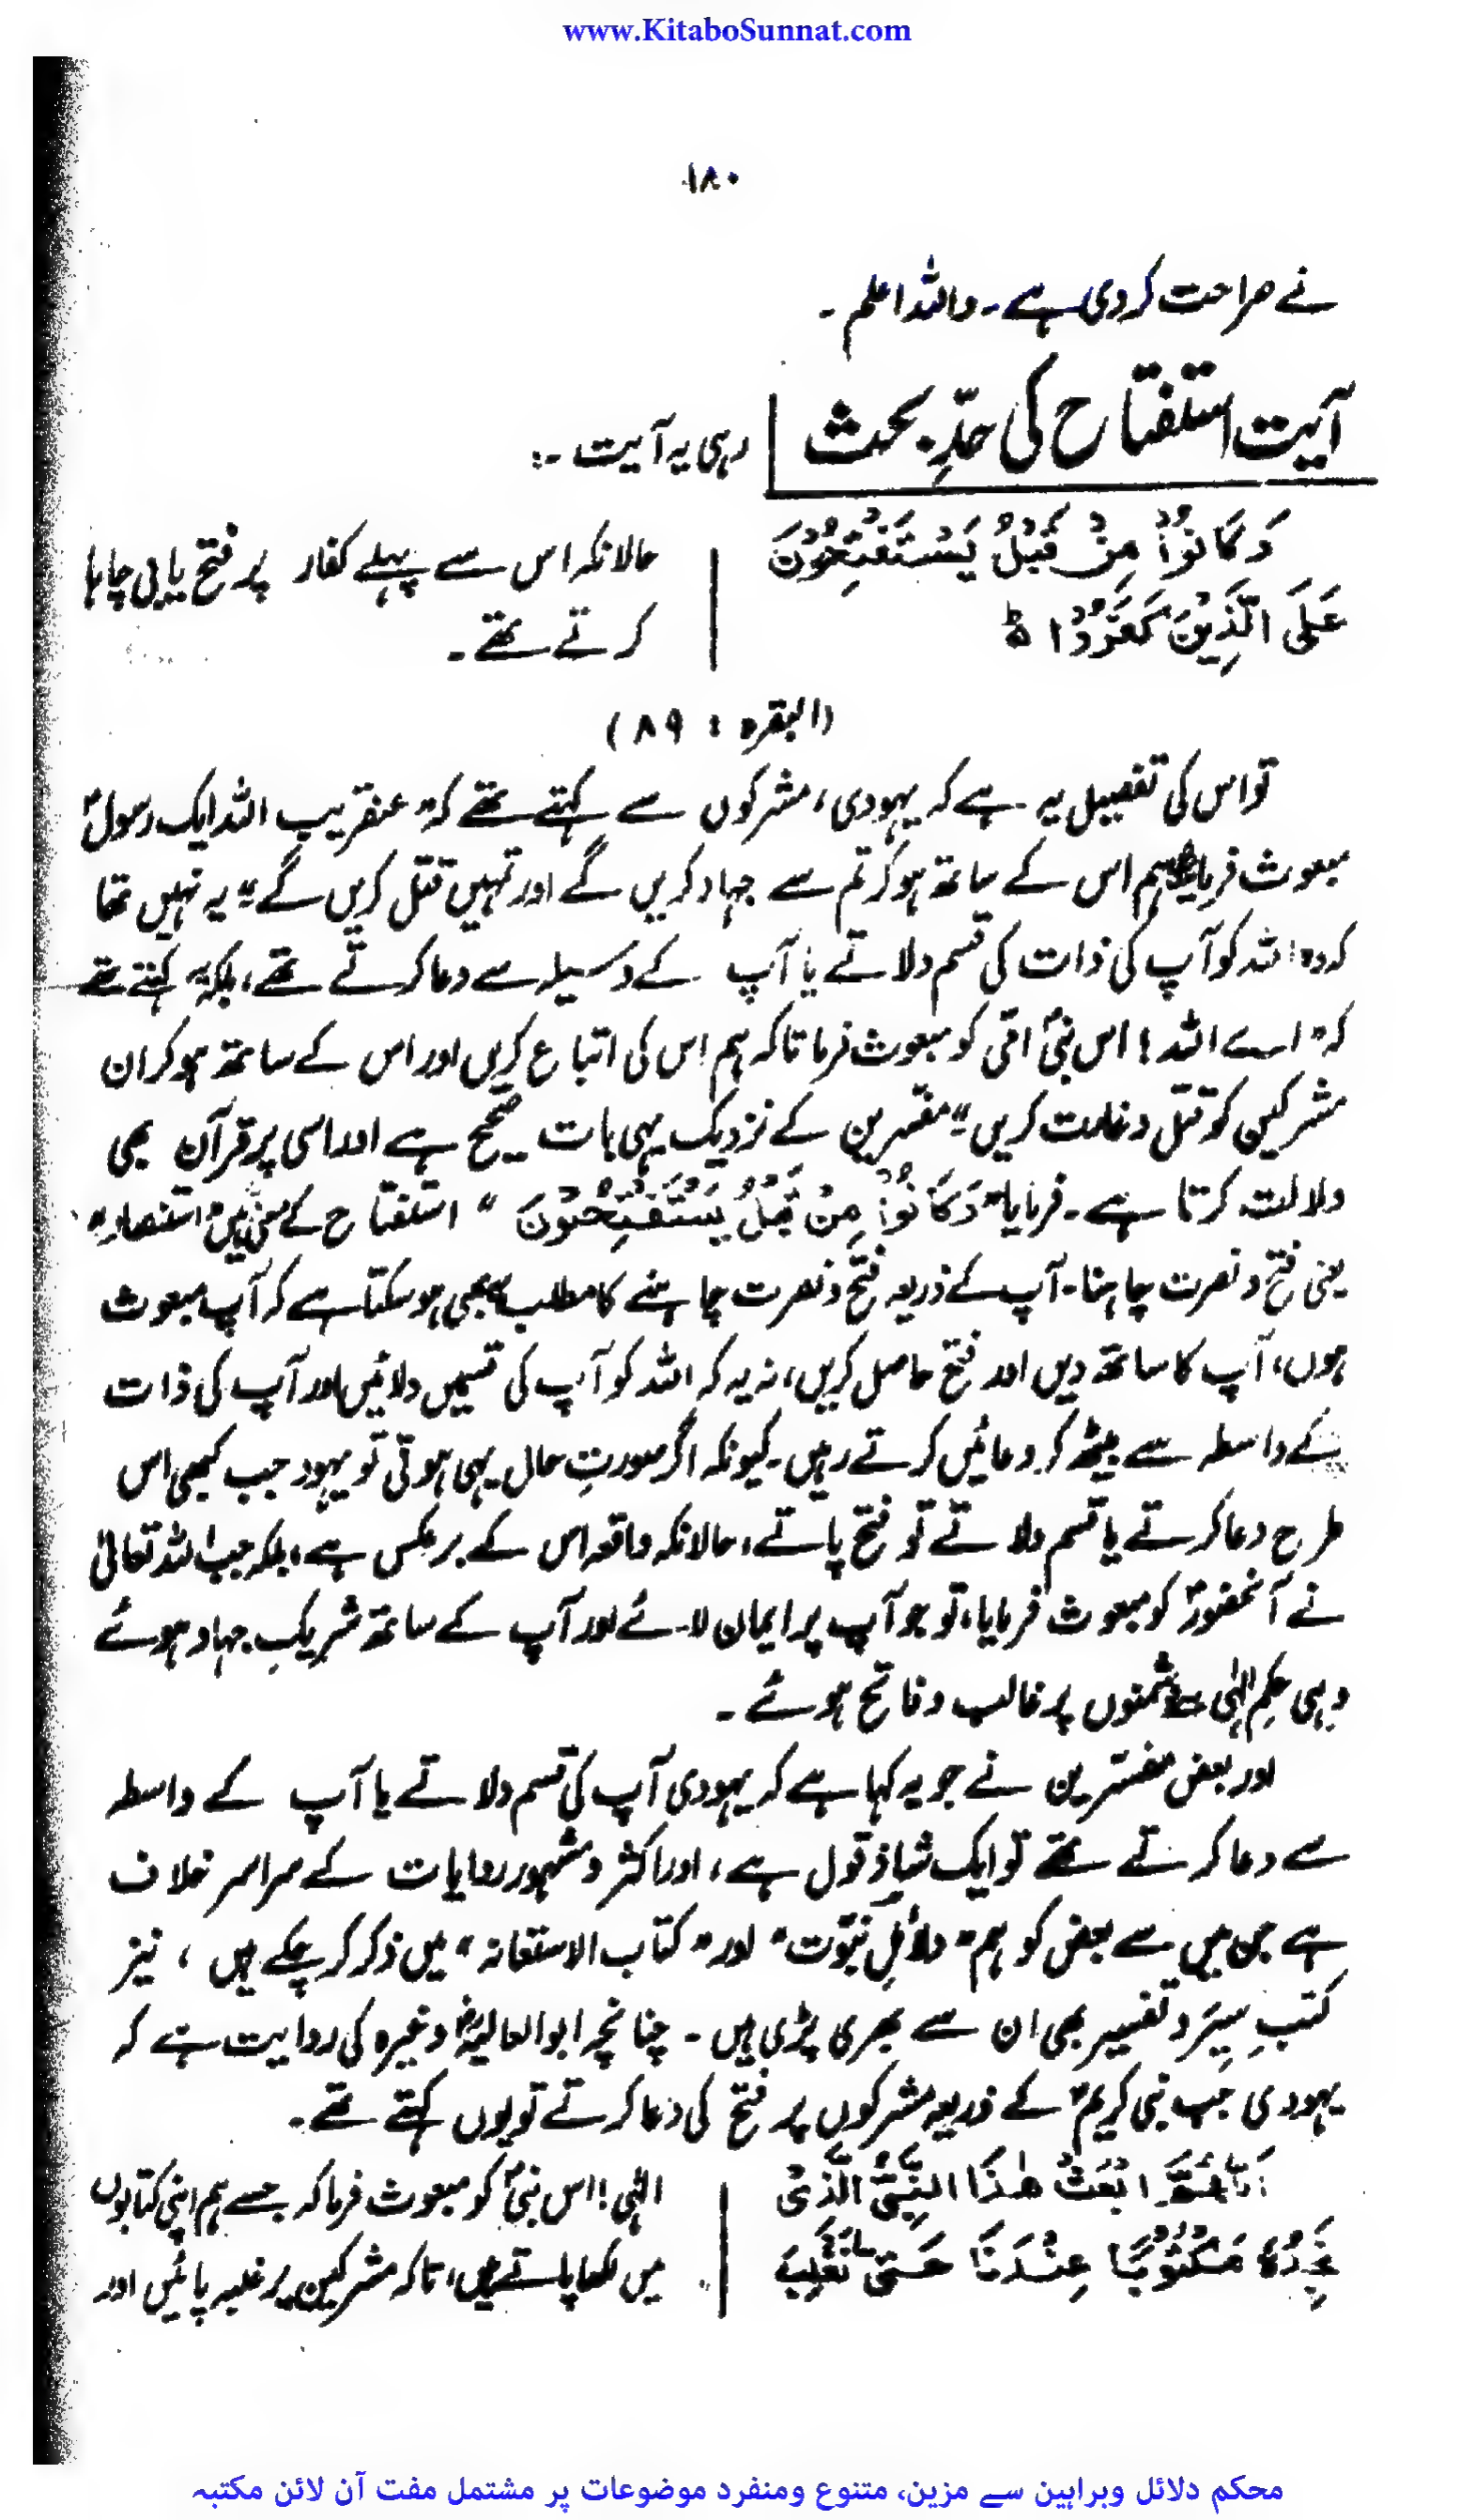 www.KitaboSunnat.com
۱۸۰
نے صراحت کردی ہے۔ واللہ اعلم۔
آیت استفتاح کی جدّ بحث
رہی یہ آیت :۔
وَكَانُوْا مِنْ قَبْلُ يَسْتَفْتِحُوْنَ
عَلَى الَّذِيْنَ كَفَرُوْا ط
حالانکہ اس سے پہلے کفار پر فتح یابی چاہا
کرتے تھے۔
(البقرہ : ۸۹)
تو اس کی تفصیل یہ ہے کہ یہودی، مشرکوں سے کہتے تھے کہ "عنقریب اللہ ایک رسولؐ
مبعوث فرمائیگا ہم اس کے ساتھ ہو کر تم سے جہاد کریں گے اور تمہیں قتل کریں گے" یہ نہیں تھا
کہ وہ اللہ کو آپ کی ذات کی قسم دلاتے یا آپ کے وسیلہ سے دعا کرتے تھے، بلکہ یہ کہتے تھے
کہ "اے اللہ! اس نبیؐ امّی کو مبعوث فرما تاکہ ہم اس کی اتباع کریں اور اس کے ساتھ ہو کر ان
مشرکین کو قتل و غارت کریں" مفسّرین کے نزدیک یہی بات صحیح ہے اور اسی پر قرآن بھی
دلالت کرتا ہے۔ فرمایا "وَكَانُوْا مِنْ قَبْلُ يَسْتَفْتِحُوْنَ" استفتاح کے معنی ہیں "استنصار"
یعنی فتح و نصرت چاہنا۔ آپ کے ذریعہ فتح و نصرت چاہنے کا مطلب یہ بھی ہو سکتا ہے کہ آپ مبعوث
ہوں، آپ کا ساتھ دیں اور فتح حاصل کریں، نہ یہ کہ اللہ کو آپ کی قسمیں دلائیں اور آپ کی ذات
کے واسطہ سے بیٹھ کر دعائیں کرتے رہیں۔ کیونکہ اگر صورتِ حال یہی ہوتی تو یہود جب کبھی اس
طرح دعا کرتے یا قسم دلاتے تو فتح پاتے، حالانکہ واقعہ اس کے برعکس ہے، بلکہ جب اللہ تعالیٰ
نے آنحضورؐ کو مبعوث فرمایا، تو جو آپ پر ایمان لائے اور آپ کے ساتھ شریکِ جہاد ہوئے
وہی حکمِ الٰہی سے دشمنوں پر غالب و فاتح ہوئے۔
اور بعض مفسّرین نے جو یہ کہا ہے کہ یہودی آپ کی قسم دلاتے یا آپ کے واسطہ
سے دعا کرتے تھے تو ایک شاذ قول ہے، اور اکثر و مشہور روایات کے سراسر خلاف
ہے جن میں سے بعض کو ہم "دلائلِ نبوّت" اور "کتاب الاستغاثہ" میں ذکر کر چکے ہیں، نیز
کتبِ سِیَر و تفسیر بھی ان سے بھری پڑی ہیں۔ چنانچہ ابو العالیہؒ وغیرہ کی روایت ہے کہ
یہودی جب نبی کریمؐ کے ذریعہ مشرکوں پر فتح کی دعا کرتے تو یوں کہتے تھے۔
اَللّٰهُمَّ ابْعَثْ هٰذَا النَّبِيَّ الَّذِىْ
نَجِدُهٗ مَكْتُوْبًا عِنْدَنَا حَتّٰى نَغْلِبَ
الٰہی! اس نبیؐ کو مبعوث فرما کہ جسے ہم اپنی کتابوں
میں لکھا پاتے ہیں، تاکہ مشرکین پر غلبہ پائیں اور
محکم دلائل وبراہین سے مزین، متنوع ومنفرد موضوعات پر مشتمل مفت آن لائن مکتبہ